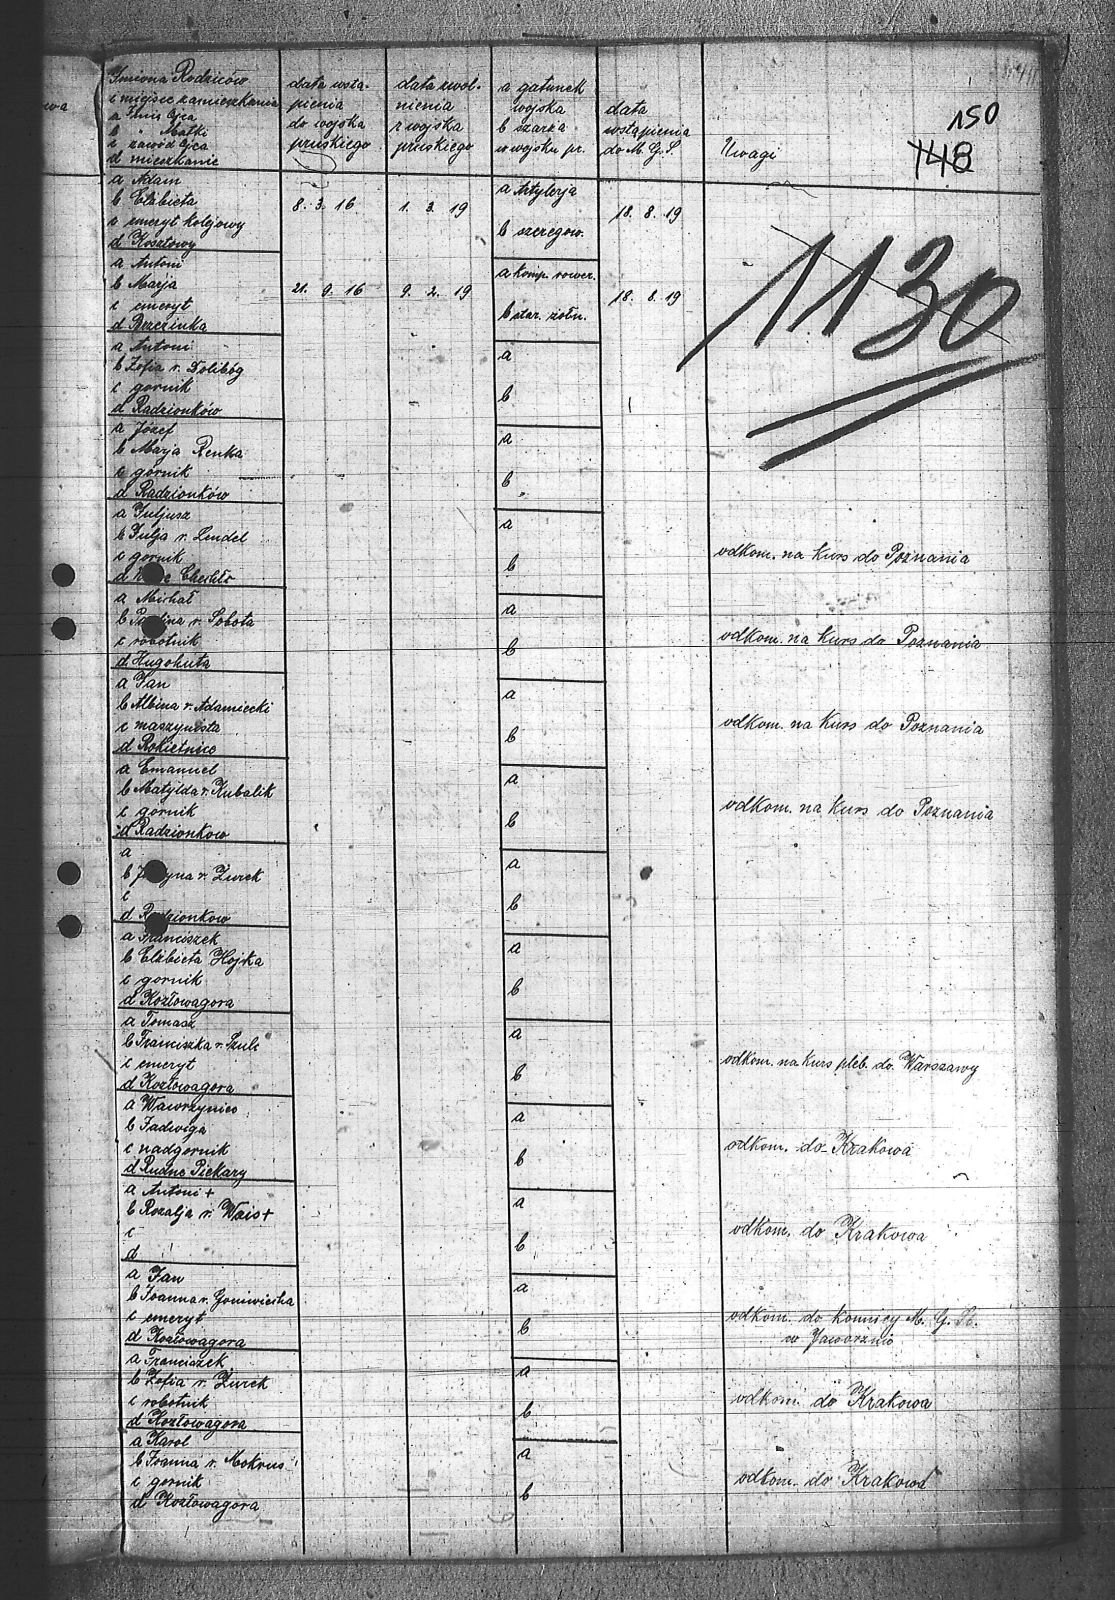 Imiona Rodziców
i miejsce zamieszkania
a Imię Ojca
b " Matki
c zawód Ojca
d mieszkanie
data wstą-
pienia
do wojska
pruskiego
data zwol-
nienia
z wojska
pruskiego
a gatunek
wojska
b szarża
w wojsku pr.
data
wstąpienia
do M. G. S.
Uwagi
150
148
1130
a Adam
b Elżbieta
c emeryt kolejowy
d Kosztowy
8. 3. 16
1. 3. 19
a Artylerja
b szeregow.
18. 8. 19
a Antoni
b Marja
c emeryt
d Brzezinka
21. 9. 16
9. 2. 19
a komp. rower.
b star. żołn.
18. 8. 19
a Antoni
b Zofia r. Dolibóg
c gornik
d Radzionków
a
b
a Józef
b Marja Renka
c górnik
d Radzionków
a
b
a Juljusz
b Julja r. Lindel
c gornik
d Chechło
a
b
odkom. na kurs do Poznania
a Michał
b r. Sobota
c robotnik
d Hugohuta
a
b
odkom. na kurs do Poznania
a Jan
b Albina r. Adamiecki
c maszynista
d Rokietnice
a
b
odkom. na kurs do Poznania
a Emanuel
b Matylda r. Kubalik
c gornik
d Radzionkow
a
b
odkom. na kurs do Poznania
a
b r. Żurek
c
d Radzionkow
a
b
a Franciszek
b Elżbieta Hojka
c gornik
d Kozłowagora
a
b
a Tomasz
b Franciszka r. Szulc
c emeryt
d Kozłowagora
a
b
odkom. na kurs pleb. do Warszawy
a Wawrzyniec
b Jadwiga
c nadgornik
d Rudne Piekary
a
b
odkom. do Krakowa
a Antoni +
b Rozalja r. Wais +
c
d
a
b
odkom. do Krakowa
a Jan
b Joanna r.
c emeryt
d Kozłowagora
a
b
odkom. do konnicy M. G. Śl.
w Jaworznie
a Franciszek
b Zofia r. Żurek
c robotnik
d Kozłowagora
a
b
odkom. do Krakowa
a Karol
b Joanna r. Mokrus
c gornik
d Kozłowagora
a
b
odkom. do Krakowa